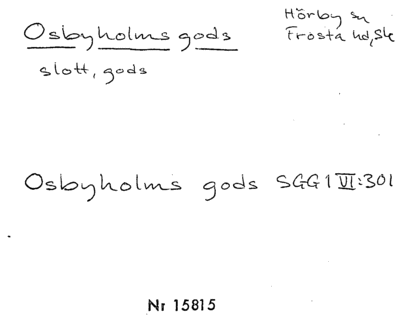 Osbyholms gods
slott, gods
Hörby sn
Frosta hd, Sk
Osbyholms gods SGG 1 VI:301
Nr 15815